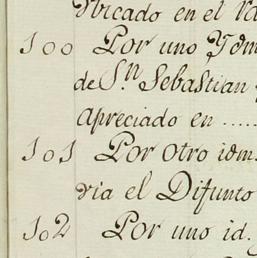 Vbicado en el
100 Por uno Ydm
de Sn Sebastian
Apreciado en .....
101 Por otro idm.
via el Difunto
102 Por uno id.